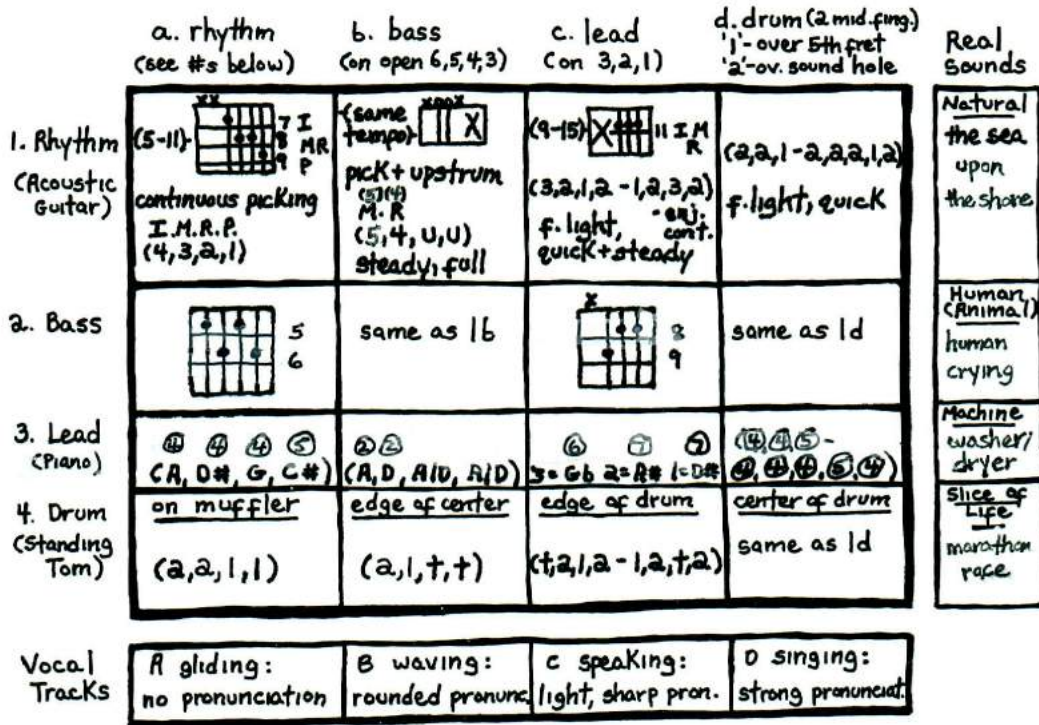 a. rhythm
(see #s below)
b. bass
(on open 6,5,4,3)
c. lead
(on 3,2,1)
d. drum (2 mid. fing.)
'1'-over 5th fret
'2'-ov. sound hole
Real
Sounds
1. Rhythm
(Acoustic
Guitar)
xx
(5-11)
7 I
8 MR
9 P
continuous picking
I.M.R.P.
(4,3,2,1)
(same
tempo)
xoox
X
pick + upstrum
(5)(4)
M. R
(5,4,U,U)
steady, full
(9-15)
X
11 I M
R
(3,2,1,2 -1,2,3,2)
f. light,
cont.
quick + steady
(2,2,1-2,2,2,1,2)
f. light, quick
Natural
the sea
upon
the shore
2. Bass
5
6
same as 1b
x
8
9
same as 1d
Human
(Animal)
human
crying
3. Lead
(Piano)
4 4 4 5
(A, D#, G, C#)
2 2
(A, D, A/D, A/D)
6 7 7
3=Gb 2=A# 1=D#
(4,4,5-
4,4,4,5,4)
Machine
washer/
dryer
4. Drum
(Standing
Tom)
on muffler
(2,2,1,1)
edge of center
(2,1,t,t)
edge of drum
(t,2,1,2-1,2,t,2)
center of drum
same as 1d
Slice of
Life
marathon
race
Vocal
Tracks
A gliding:
no pronunciation
B waving:
rounded pronunc.
C speaking:
light, sharp pron.
D singing:
strong pronunciat.